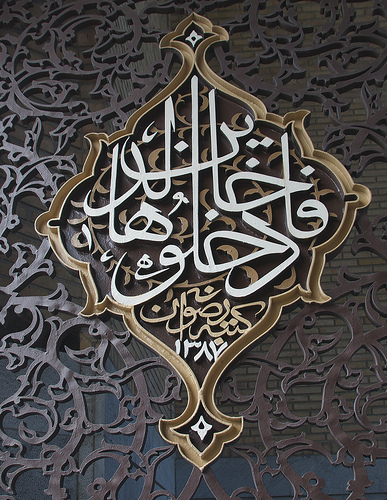 فادخلوها خالدین
کتیبه رضوان
۱۳۸۷